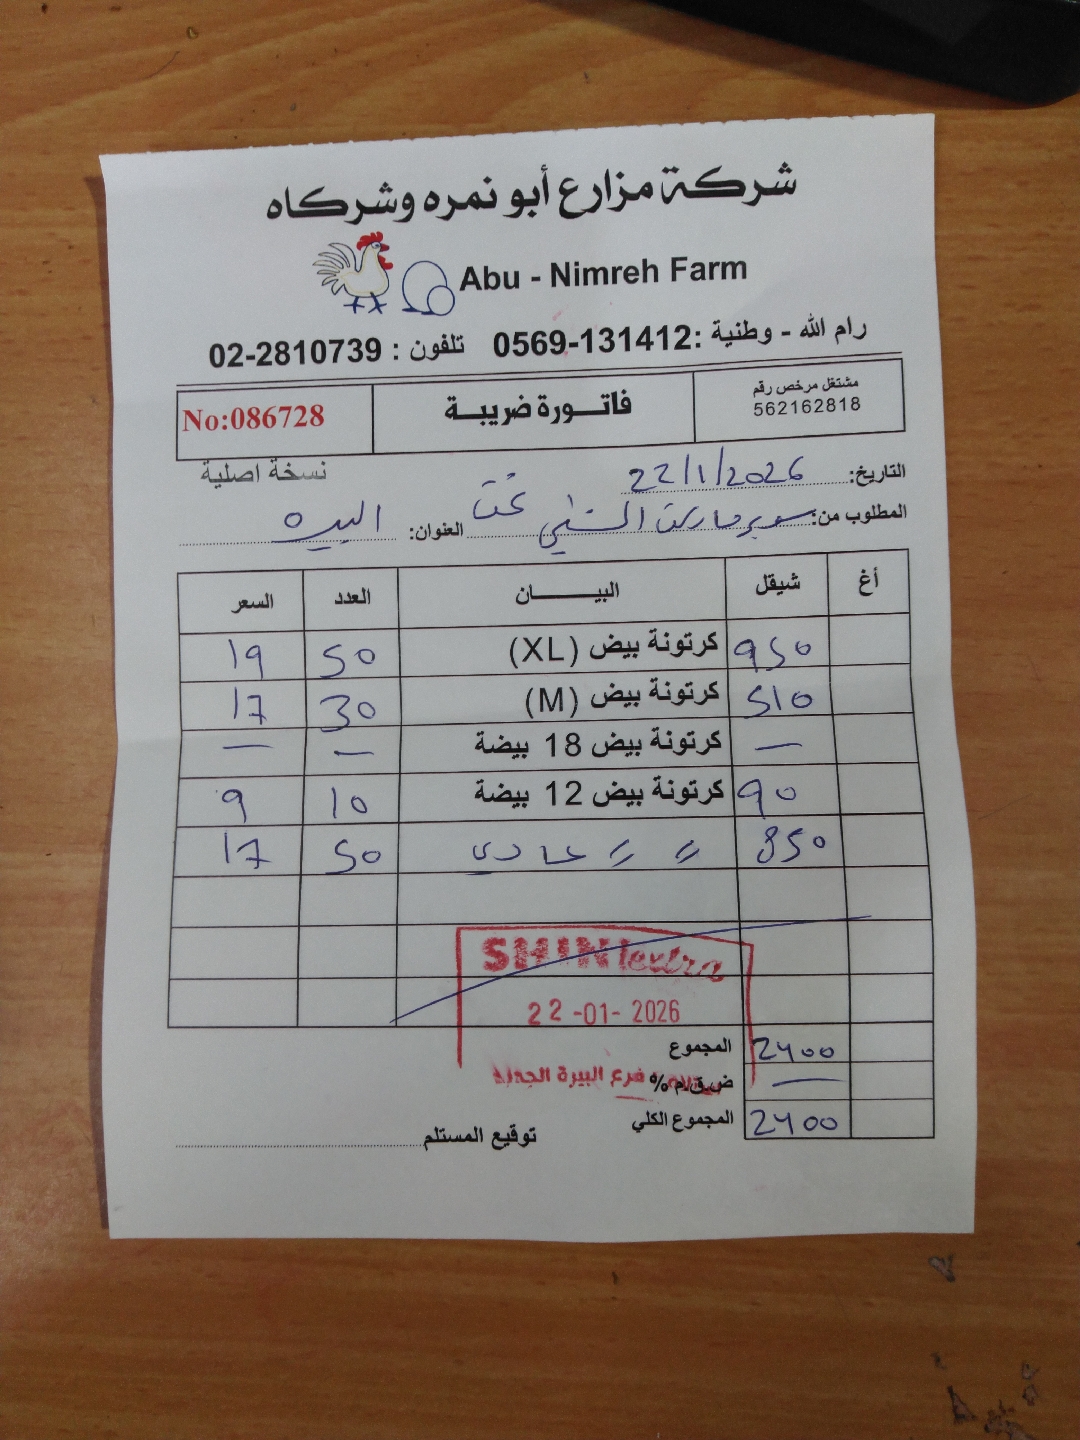 شركة مزارع أبو نمره وشركاه
Abu - Nimreh Farm
رام الله - وطنية :0569-131412 تلفون : 02-2810739
مشتغل مرخص رقم
562162818
فاتورة ضريبة
No:086728
نسخة اصلية
التاريخ: 22/1/2026
المطلوب من: سوبرماركت الشني تحت العنوان: البيره
أغ شيقل البيان العدد السعر
950 كرتونة بيض (XL) 50 19
510 كرتونة بيض (M) 30 17
— كرتونة بيض 18 بيضة — —
90 كرتونة بيض 12 بيضة 10 9
850 〃 〃 عادي 50 17
SHINI extra
22 -01- 2026
فرع البيرة
المجموع 2400
ض.ق.م % —
المجموع الكلي 2400
توقيع المستلم